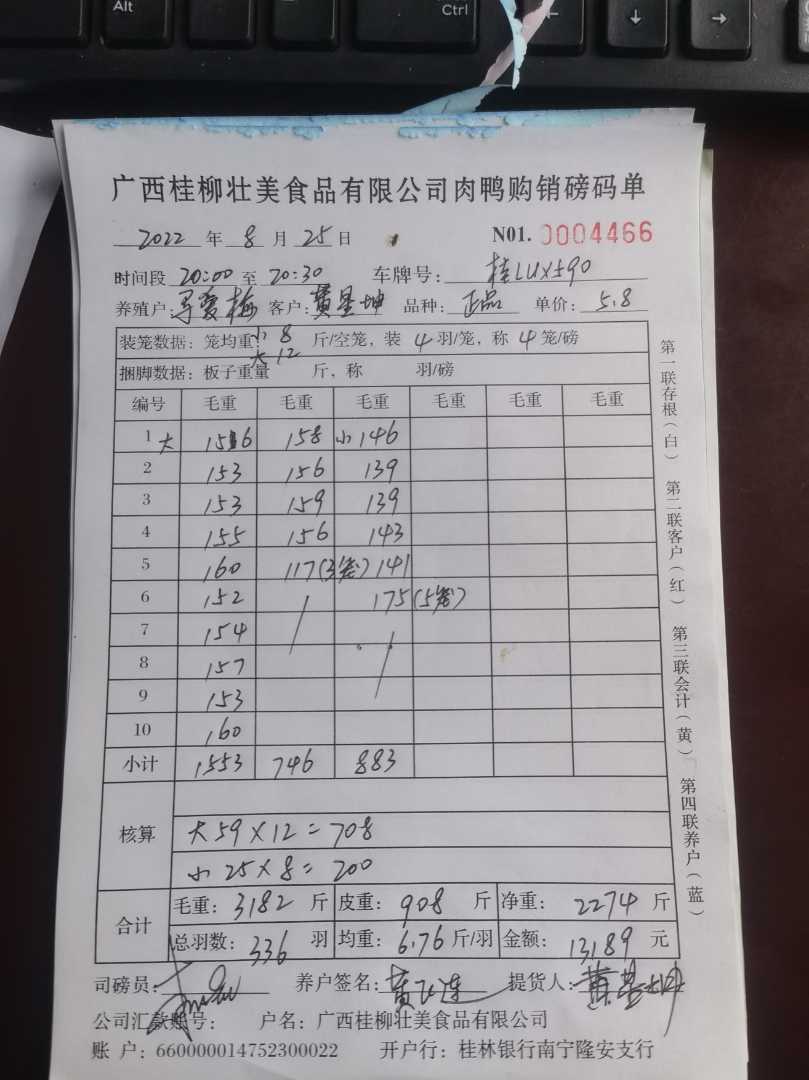 Alt
Ctrl
广西桂柳壮美食品有限公司肉鸭购销磅码单
2022 年 8 月 25 日 N01. 0004466
时间段 20:00 至 20:30 车牌号: 桂LUX590
养殖户: 梅 客户: 黄星坤 品种: 正品 单价: 5.8
装笼数据: 笼均重 小 8 斤/空笼, 装 4 羽/笼, 称 4 笼/磅
大 12
捆脚数据: 板子重量 斤, 称 羽/磅
编号 毛重 毛重 毛重 毛重 毛重 毛重
1 大 156 158 小 146
2 153 156 139
3 153 159 139
4 155 156 143
5 160 117(3笼) 141
6 152 175(5笼)
7 154
8 157
9 153
10 160
小计 1553 746 883
核算
大 59×12=708
小 25×8=200
合计
毛重: 3182 斤 皮重: 908 斤 净重: 2274 斤
总羽数: 336 羽 均重: 6.76 斤/羽 金额: 13189 元
司磅员: 养户签名: 黄 提货人: 黄星坤
公司汇款账号: 户名: 广西桂柳壮美食品有限公司
账 户: 660000014752300022 开户行: 桂林银行南宁隆安支行
第一联存根(白) 第二联客户(红) 第三联会计(黄) 第四联养户(蓝)